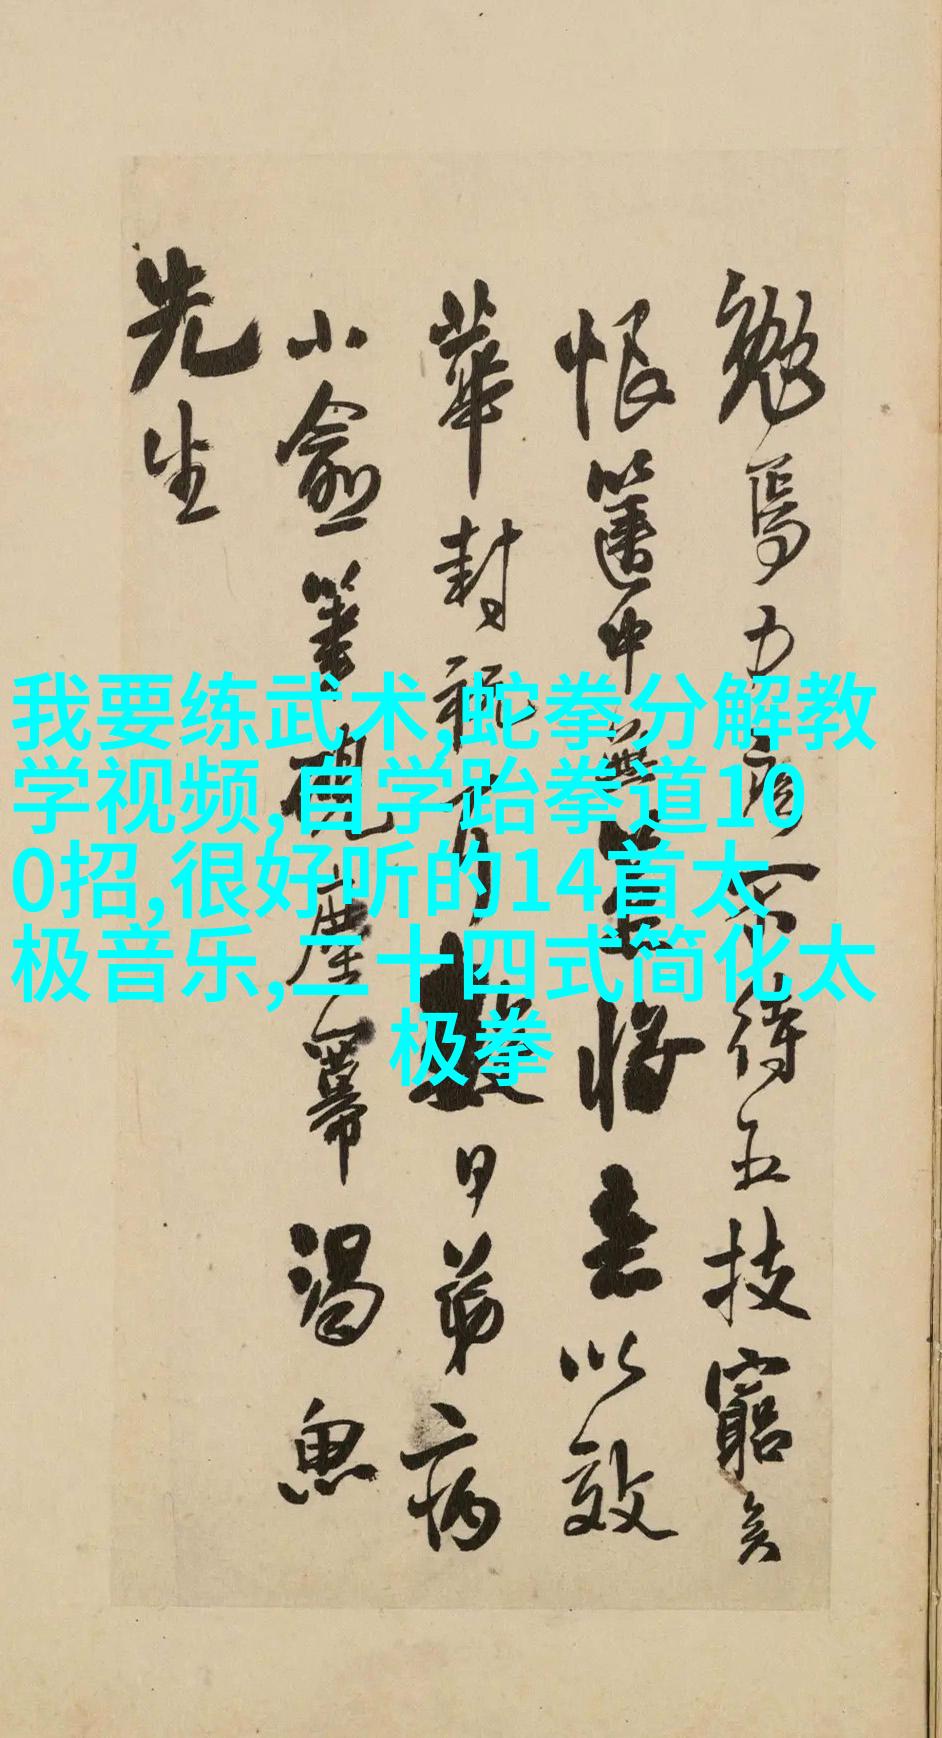 我要练武术,蛇拳分解教
学视频,自学跆拳道10
0招,很好听的14首太
极音乐,二十四式简化太
极拳
勉焉力疾 不待五技窮矣
恨篋中無 將意以效
華封祝 日弟病
小 塵冪渴魚
先生